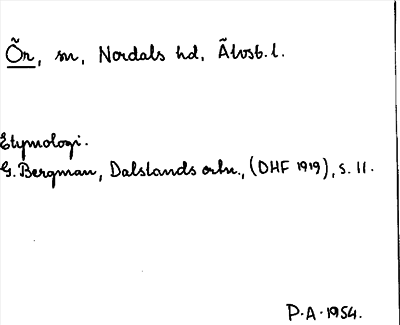 Ör, sn, Nordals hd, Älvsb. l.
Etymologi.
G. Bergman, Dalslands ortn., (DHF 1919), s. 11.
P.A. 1954.